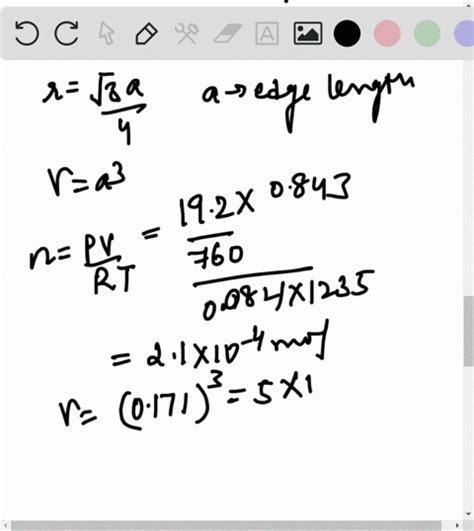 r = √3 a / 4    a → edge length
V = a³
n = PV / RT = 19.2 × 0.843 / 760 / 0.084 × 1235
= 2.1 × 10⁻⁴ mol
V = (0.171)³ = 5 × 1
A